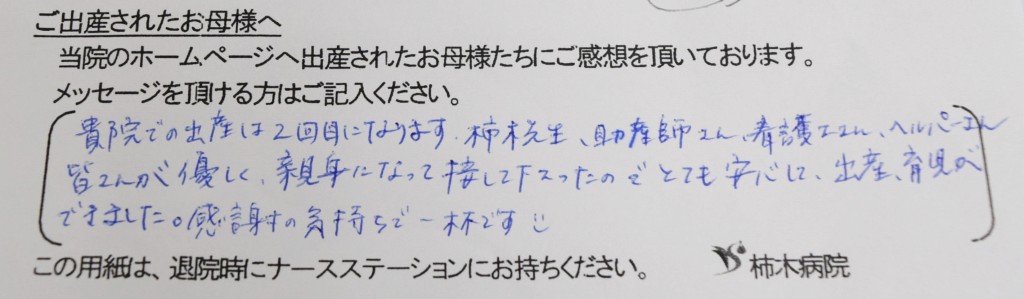 ご出産されたお母様へ
当院のホームページへ出産されたお母様たちにご感想を頂いております。
メッセージを頂ける方はご記入ください。
貴院での出産は2回目になります。柿木先生、助産師さん、看護士さん、ヘルパーさん
皆さんが優しく、親身になって接して下さったのでとても安心して、出産、育児が
できました。感謝の気持ちで一杯です☺
この用紙は、退院時にナースステーションにお持ちください。 柿木病院